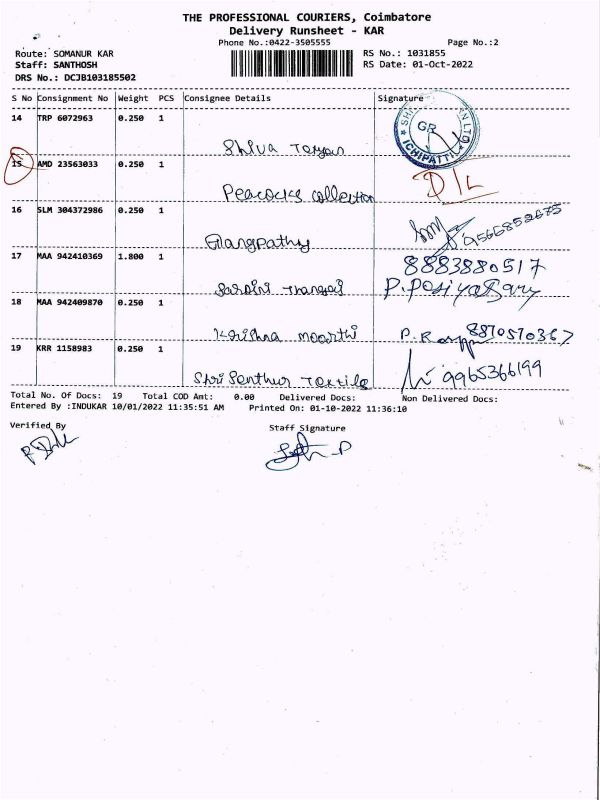 THE PROFESSIONAL COURIERS, Coimbatore
Delivery Runsheet - KAR
Phone No.:0422-3505555 Page No.:2
Route: SOMANUR KAR RS No.: 1031855
Staff: SANTHOSH RS Date: 01-Oct-2022
DRS No.: DCJB103185502
S No Consignment No Weight PCS Consignee Details Signature
14 TRP 6072963 0.250 1
GR
ICHIPATTI
Shiva
15 AMD 23563033 0.250 1
D/L
Peacocks collection
16 SLM 304372986 0.250 1
9566852675
17 MAA 942410369 1.800 1
8883880517
P.
18 MAA 942409870 0.250 1
Krishna moorthi P. 8870570367
19 KRR 1158983 0.250 1
Shri Senthur Textile 9965366199
Total No. Of Docs: 19 Total COD Amt: 0.00 Delivered Docs: Non Delivered Docs:
Entered By :INDUKAR 10/01/2022 11:35:51 AM Printed On: 01-10-2022 11:36:10
Verified By Staff Signature